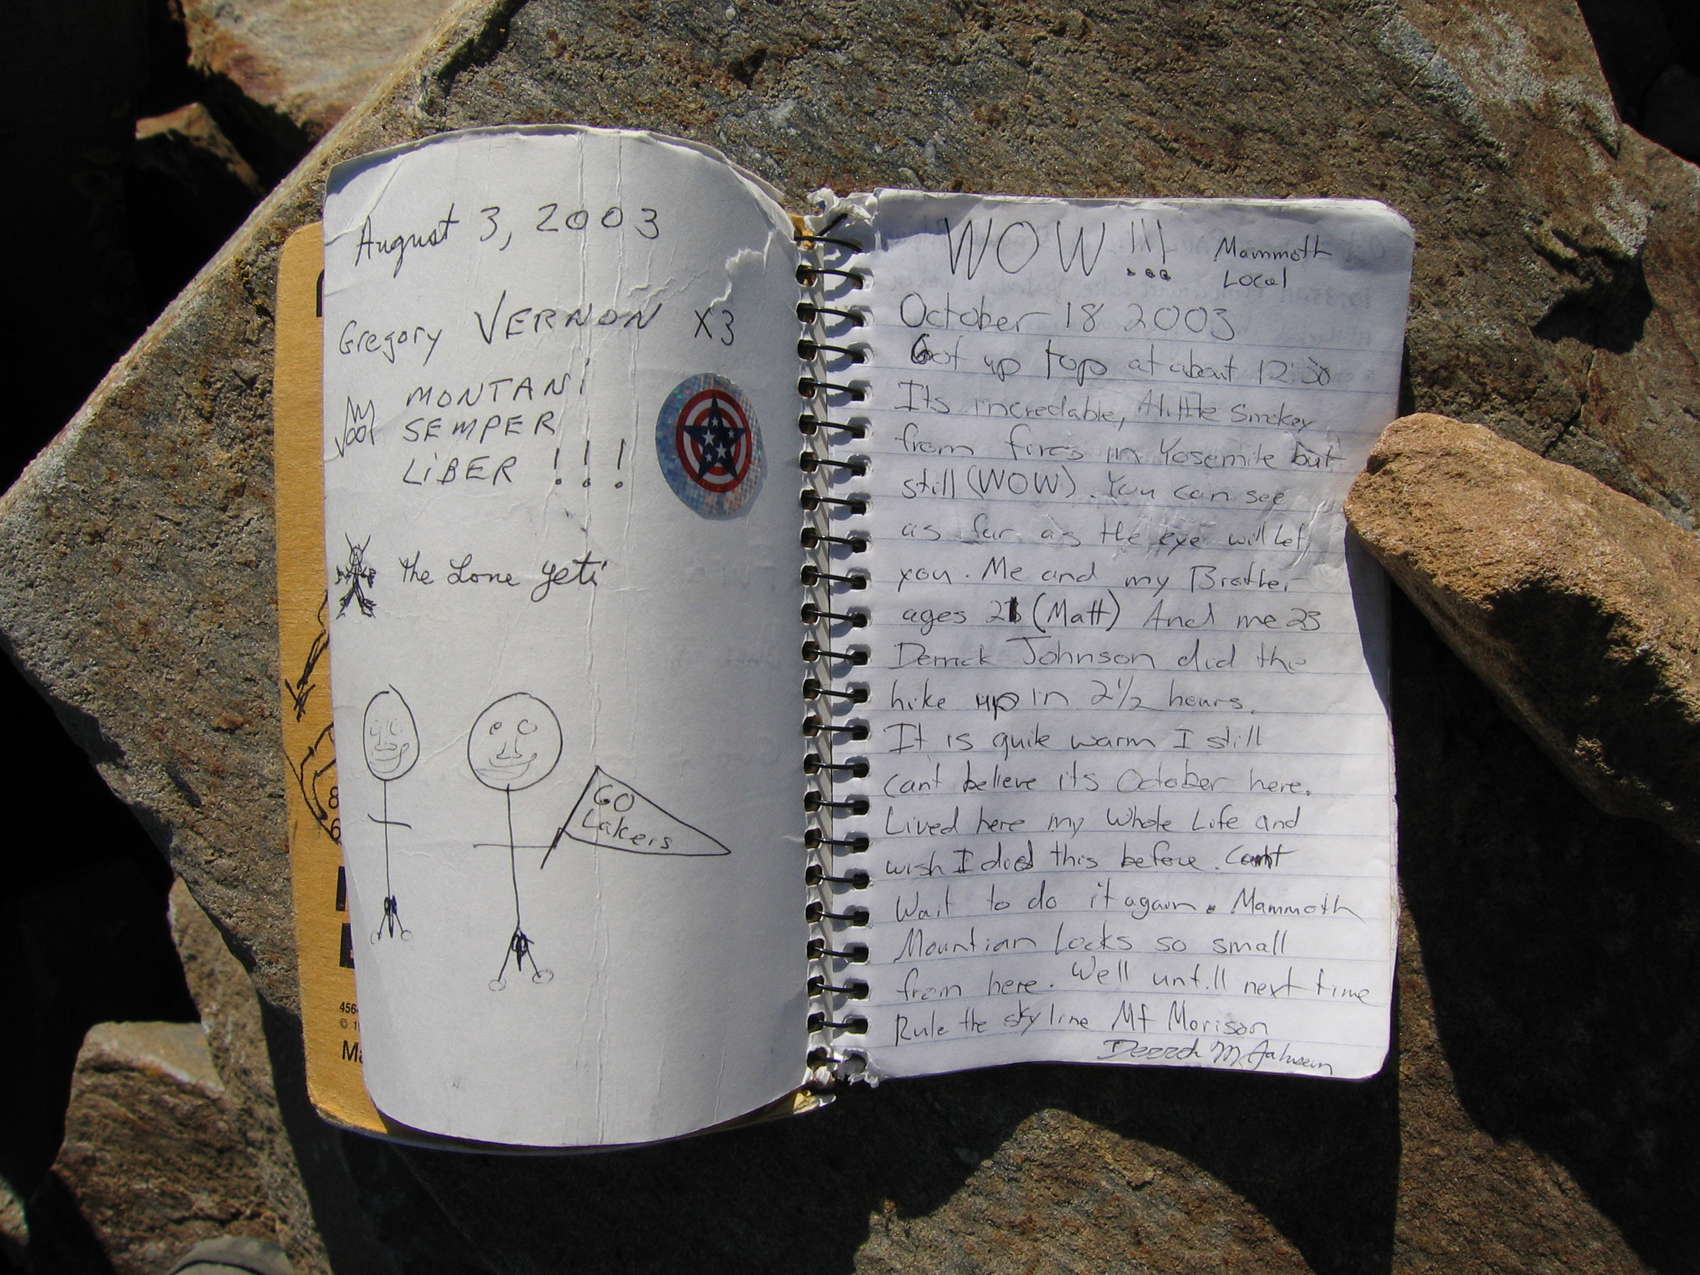 August 3, 2003
Gregory VERNON X3
MONTANI
SEMPER
LIBER !!!
the Lone Yeti
GO
Lakers
8
6
456
© 1
Ma
WOW!!! Mammoth
Local
October 18 2003
Got up top at about 12:30
Its incredable, A little Smokey
from fires in Yosemite but
still (WOW). You can see
as far as the eye will let
you. Me and my Brother
ages 21 (Matt) And me 23
Derrick Johnson did the
hike up in 2 1/2 hours.
It is quite warm I still
cant believe its October here.
Lived here my whole Life and
wish I did this before. Cant
Wait to do it again. Mammoth
Mountian Locks so small
from here. Well untill next time
Rule the sky line Mt Morison